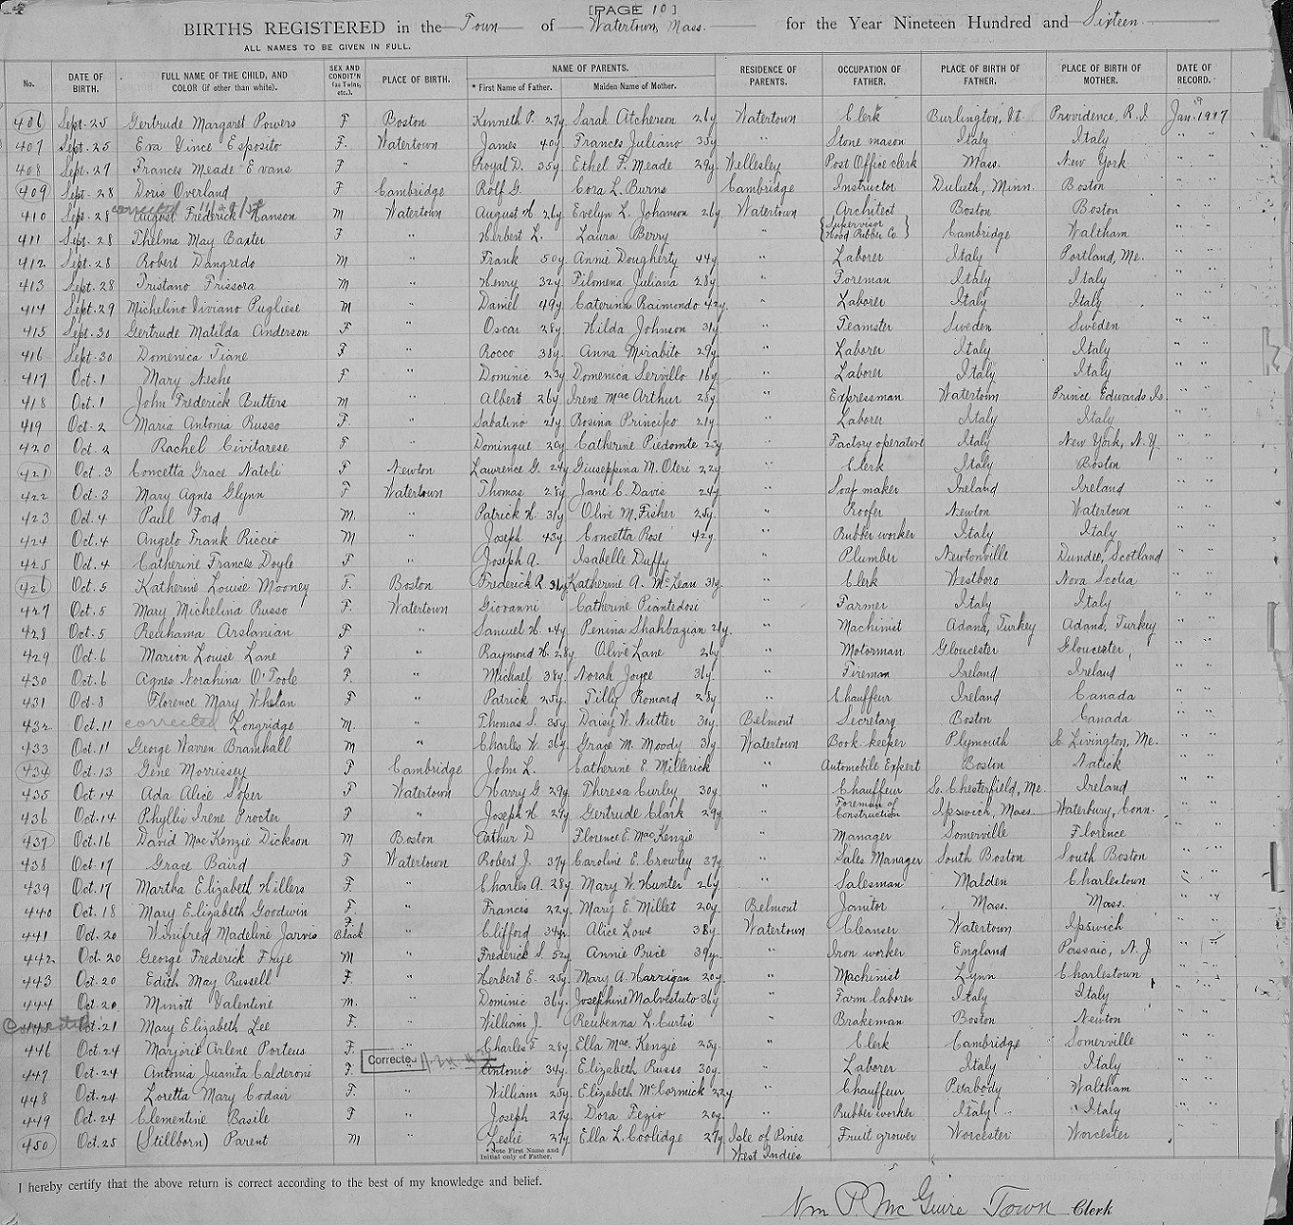 [PAGE 10]
BIRTHS REGISTERED in the Town of Watertown, Mass. for the Year Nineteen Hundred and Sixteen
ALL NAMES TO BE GIVEN IN FULL.
No. DATE OF BIRTH. FULL NAME OF THE CHILD, AND COLOR (if other than white). SEX AND CONDIT'N (as Twins, etc.). PLACE OF BIRTH. NAME OF PARENTS. * First Name of Father. Maiden Name of Mother. RESIDENCE OF PARENTS. OCCUPATION OF FATHER. PLACE OF BIRTH OF FATHER. PLACE OF BIRTH OF MOTHER. DATE OF RECORD.
406 Sept. 25 Gertrude Margaret Powers F Boston Kenneth P. 27y. Sarah Atcherson 26y Watertown Clerk Burlington, Vt. Providence, R.I. Jan. 1917
407 Sept. 25 Eva Vince Esposito F. Watertown James 40y Frances Juliano 35y " Stone mason Italy Italy " "
408 Sept. 27 Frances Meade Evans F " Royal D. 35y Ethel F. Meade 29y. Wellesley Post Office clerk Mass. New York " "
409 Sept. 28 Doris Overland F Cambridge Rolf G. Cora L. Burns Cambridge Instructor Duluth, Minn. Boston " "
410 Sept. 28 corrected August Frederick Hanson M Watertown August H. 26y Evelyn L. Johanson 26y Watertown Architect Boston Boston " "
411 Sept. 28 Thelma May Baxter F " Herbert L. Laura Berry " {Supervisor Hood Rubber Co.} Cambridge Waltham " "
412 Sept. 28 Robert Dangredo M " Frank 50y Annie Dougherty 44y " Laborer Italy Portland, Me. " "
413 Sept. 28 Tristano Frissora M " Henry 32y Filomena Juliana 28y " Foreman Italy Italy " "
414 Sept. 29 Michelino Viviano Pugliese M " Daniel 49y Caterina Raimondo 42y. " Laborer Italy Italy " "
415 Sept. 30 Gertrude Matilda Anderson F " Oscar 28y. Hilda Johnson 31y " Teamster Sweden Sweden " "
416 Sept. 30 Domenica Tiane F " Rocco 38y. Anna Mirabito 29y. " Laborer Italy Italy " "
417 Oct. 1 Mary F " Dominic 23y Domenica Servillo 16y " Laborer Italy Italy " "
418 Oct. 1 John Frederick Butters M " Albert 26y Irene Mac Arthur 25y " Expressman Watertown Prince Edwards Is. " "
419 Oct. 2 Maria Antonia Russo F. " Sabatino 21y Rosina Principo 21y " Laborer Italy Italy " "
420 Oct. 2 Rachel Civitarese F " Domingue 20y Catherine Piedomte " Factory operative Italy New York, N.Y. " "
421 Oct. 3 Concetta Grace Natoli F Newton Lawrence G. 24y Giuseppina M. Oteri 22y " Clerk Italy Boston " "
422 Oct. 3 Mary Agnes Glynn F Watertown Thomas 28y Jane C. Davis 24y " Soap maker Ireland Ireland " "
423 Oct. 4 Paul Ford M. " Patrick H. 31y Olive M. Fisher 25y. " Roofer Newton Watertown " "
424 Oct. 4 Angelo Frank Riccio M " Joseph 43y Concetta Rose 42y " Rubber worker Italy Italy " "
425 Oct. 4 Catherine Francis Doyle F " Joseph A. Isabelle Duffy " Plumber Newtonville Dundee, Scotland " "
426 Oct. 5 Katherine Louise Mooney F. Boston Frederick R. 31y Katherine A. McLean 31y " Clerk Westboro Nova Scotia " "
427 Oct. 5 Mary Michelina Russo F. Watertown Giovanni Catherine Piantedosi " Farmer Italy Italy " "
428 Oct. 5 Reuhama Arslanian F " Samuel H. Penina Shahbazian " Machinist Adana, Turkey Adana, Turkey " "
429 Oct. 6 Marion Louise Lane F " Raymond H. 28y Olive Lane 26y " Motorman Gloucester Gloucester, " "
430 Oct. 6 Agnes Norahina O'Toole F. " Michael 38y Norah Joyce 36y " Fireman Ireland Ireland " "
431 Oct. 8 Florence Mary Whelan F " Patrick 25y. Tilly Romard 28y " Chauffeur Ireland Canada " "
432 Oct. 11 corrected Longridge M. " Thomas S. 35y Daisy W. Nutter 30y Belmont Secretary Boston Canada " "
433 Oct. 11 George Warren Bramhall M " Charles W. 36y Grace M. Moody 31y Watertown Book keeper Plymouth E. Livington, Me. " "
434 Oct. 13 Gene Morrissey F Cambridge John L. Catherine E. Millerick " Automobile Expert Boston Natick " "
435 Oct. 14 Ada Alice Soper F Watertown Harry G. 29y. Theresa Curley 30y " Chauffeur So. Chesterfield, Me. Ireland " "
436 Oct. 14 Phyllis Irene Procter F " Joseph H 27y Gertrude Clark 29y " Foreman of Construction Ipswich, Mass. Waterbury, Conn. " "
437 Oct. 16 David MacKenzie Dickson M Boston Arthur D Florence E. MacKenzie " Manager Somerville Florence " "
438 Oct. 17 Grace Baird F Watertown Robert J. 37y Caroline E. Crowley 37y " Sales Manager South Boston South Boston " "
439 Oct. 17 Martha Elizabeth Hillers F. " Charles A. 28y Mary W. Hunter 26y " Salesman Malden Charlestown " "
440 Oct. 18 Mary Elizabeth Goodwin F. " Francis 22y. Mary E. Millet 20y Belmont Janitor Mass. Mass. " "
441 Oct. 20 Winifred Madeline Jarvis F Black " Clifford 34y. Alice Lowe 38y Watertown Cleanser Watertown Ipswich " "
442 Oct. 20 George Frederick Frye M " Frederick S. 52y Annie Price 39y. " Iron worker England Passaic, N.J. " "
443 Oct. 20 Edith May Russell F. " Herbert E. 25y. Mary A. Harrigan 20y " Machinist Lynn Charlestown " "
444 Oct. 20 Minott Valentine M. " Dominic 36y. Josephine Malvetuto 36y " Farm laborer Italy Italy " "
Corrected 445 Oct. 21 Mary Elizabeth Lee F. " William J. Reubenna L. Curtis " Brakeman Boston Newton " "
446 Oct. 24 Marjorie Arlene Porteus F. " Charles F. 28y Ella MacKenzie 25y " Clerk Cambridge Somerville " "
Corrected
447 Oct. 24 Antonia Juanita Calderone F. " Antonio 34y. Elizabeth Russo 30y " Laborer Italy Italy " "
448 Oct. 24 Loretta Mary Codair F. " William 25y. Elizabeth McCormick 22y " Chauffeur Peabody Waltham " "
449 Oct. 24 Clementine Basile F " Joseph 27y Dora Fezio 20y " Rubber worker Italy Italy " "
450 Oct. 25 (Stillborn) Parent M " Leslie 27y Ella L. Coolidge 27y Isle of Pines West Indies Fruit grower Worcester Worcester " "
* Note First Name and Initial only of Father.
I hereby certify that the above return is correct according to the best of my knowledge and belief.
Wm P. McGuire Town Clerk